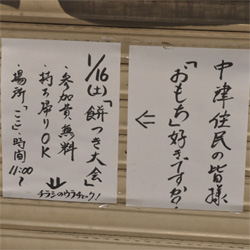 中津住民の皆様
「おもち」好きですか?
⇐
1/16(土)「餅つき大会」
・参加費無料
・持ち帰りOK
・場所「ここ」・時間11:00〜
チラシのウラチェック!